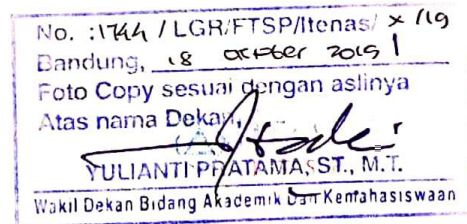 No. :1744 / LGR/FTSP/Itenas/ x /19
Bandung, 18 oktober 2019
Foto Copy sesuai dengan aslinya
Atas nama Dekan,
YULIANTI PRATAMA, ST., M.T.
Wakil Dekan Bidang Akademik Dan Kemahasiswaan